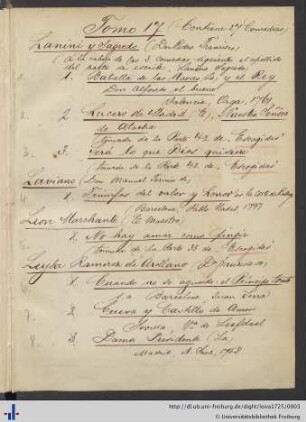 Tomo 17 (Contiene 27 Comedias)
Lanini y Sagredo (Don Pedro Francisco)
(A la cabeza de las 3 comedias, siguientes el apellido
1. Batalla de las Navas, La, y el Rey
Don Alfonso el bueno
Valencia, Orga, 1761
2. Lucero de Madrid, El, Nuestra Señora
de Atocha
tomada de la Parte 42 de Escogidas
3. Será lo que Dios quisiere
tomada de la Parte 42 de Escogidas
Laviano (Don Manuel Fermin de)
4. Triunfos del valor y honor en la corte de Rodrigo
Barcelona,
Leon Marchante (El Maestro)
5. No hay amar como fingir
tomada de la Parte de Escogidas
Leyba Ramirez de Arellano (Don Francisco de)
6. Cuando no se aguarda, el Principe tonto
Barcelona, Juan Serra
7. Cueva y Castillo de Amor
Sevilla, Vda de Leefdael
8. Dama Presidente, La
Madrid, A. Sanz,
http://dl.ub.uni-freiburg.de/diglit/leiva1725/0003
© Universitätsbibliothek Freiburg